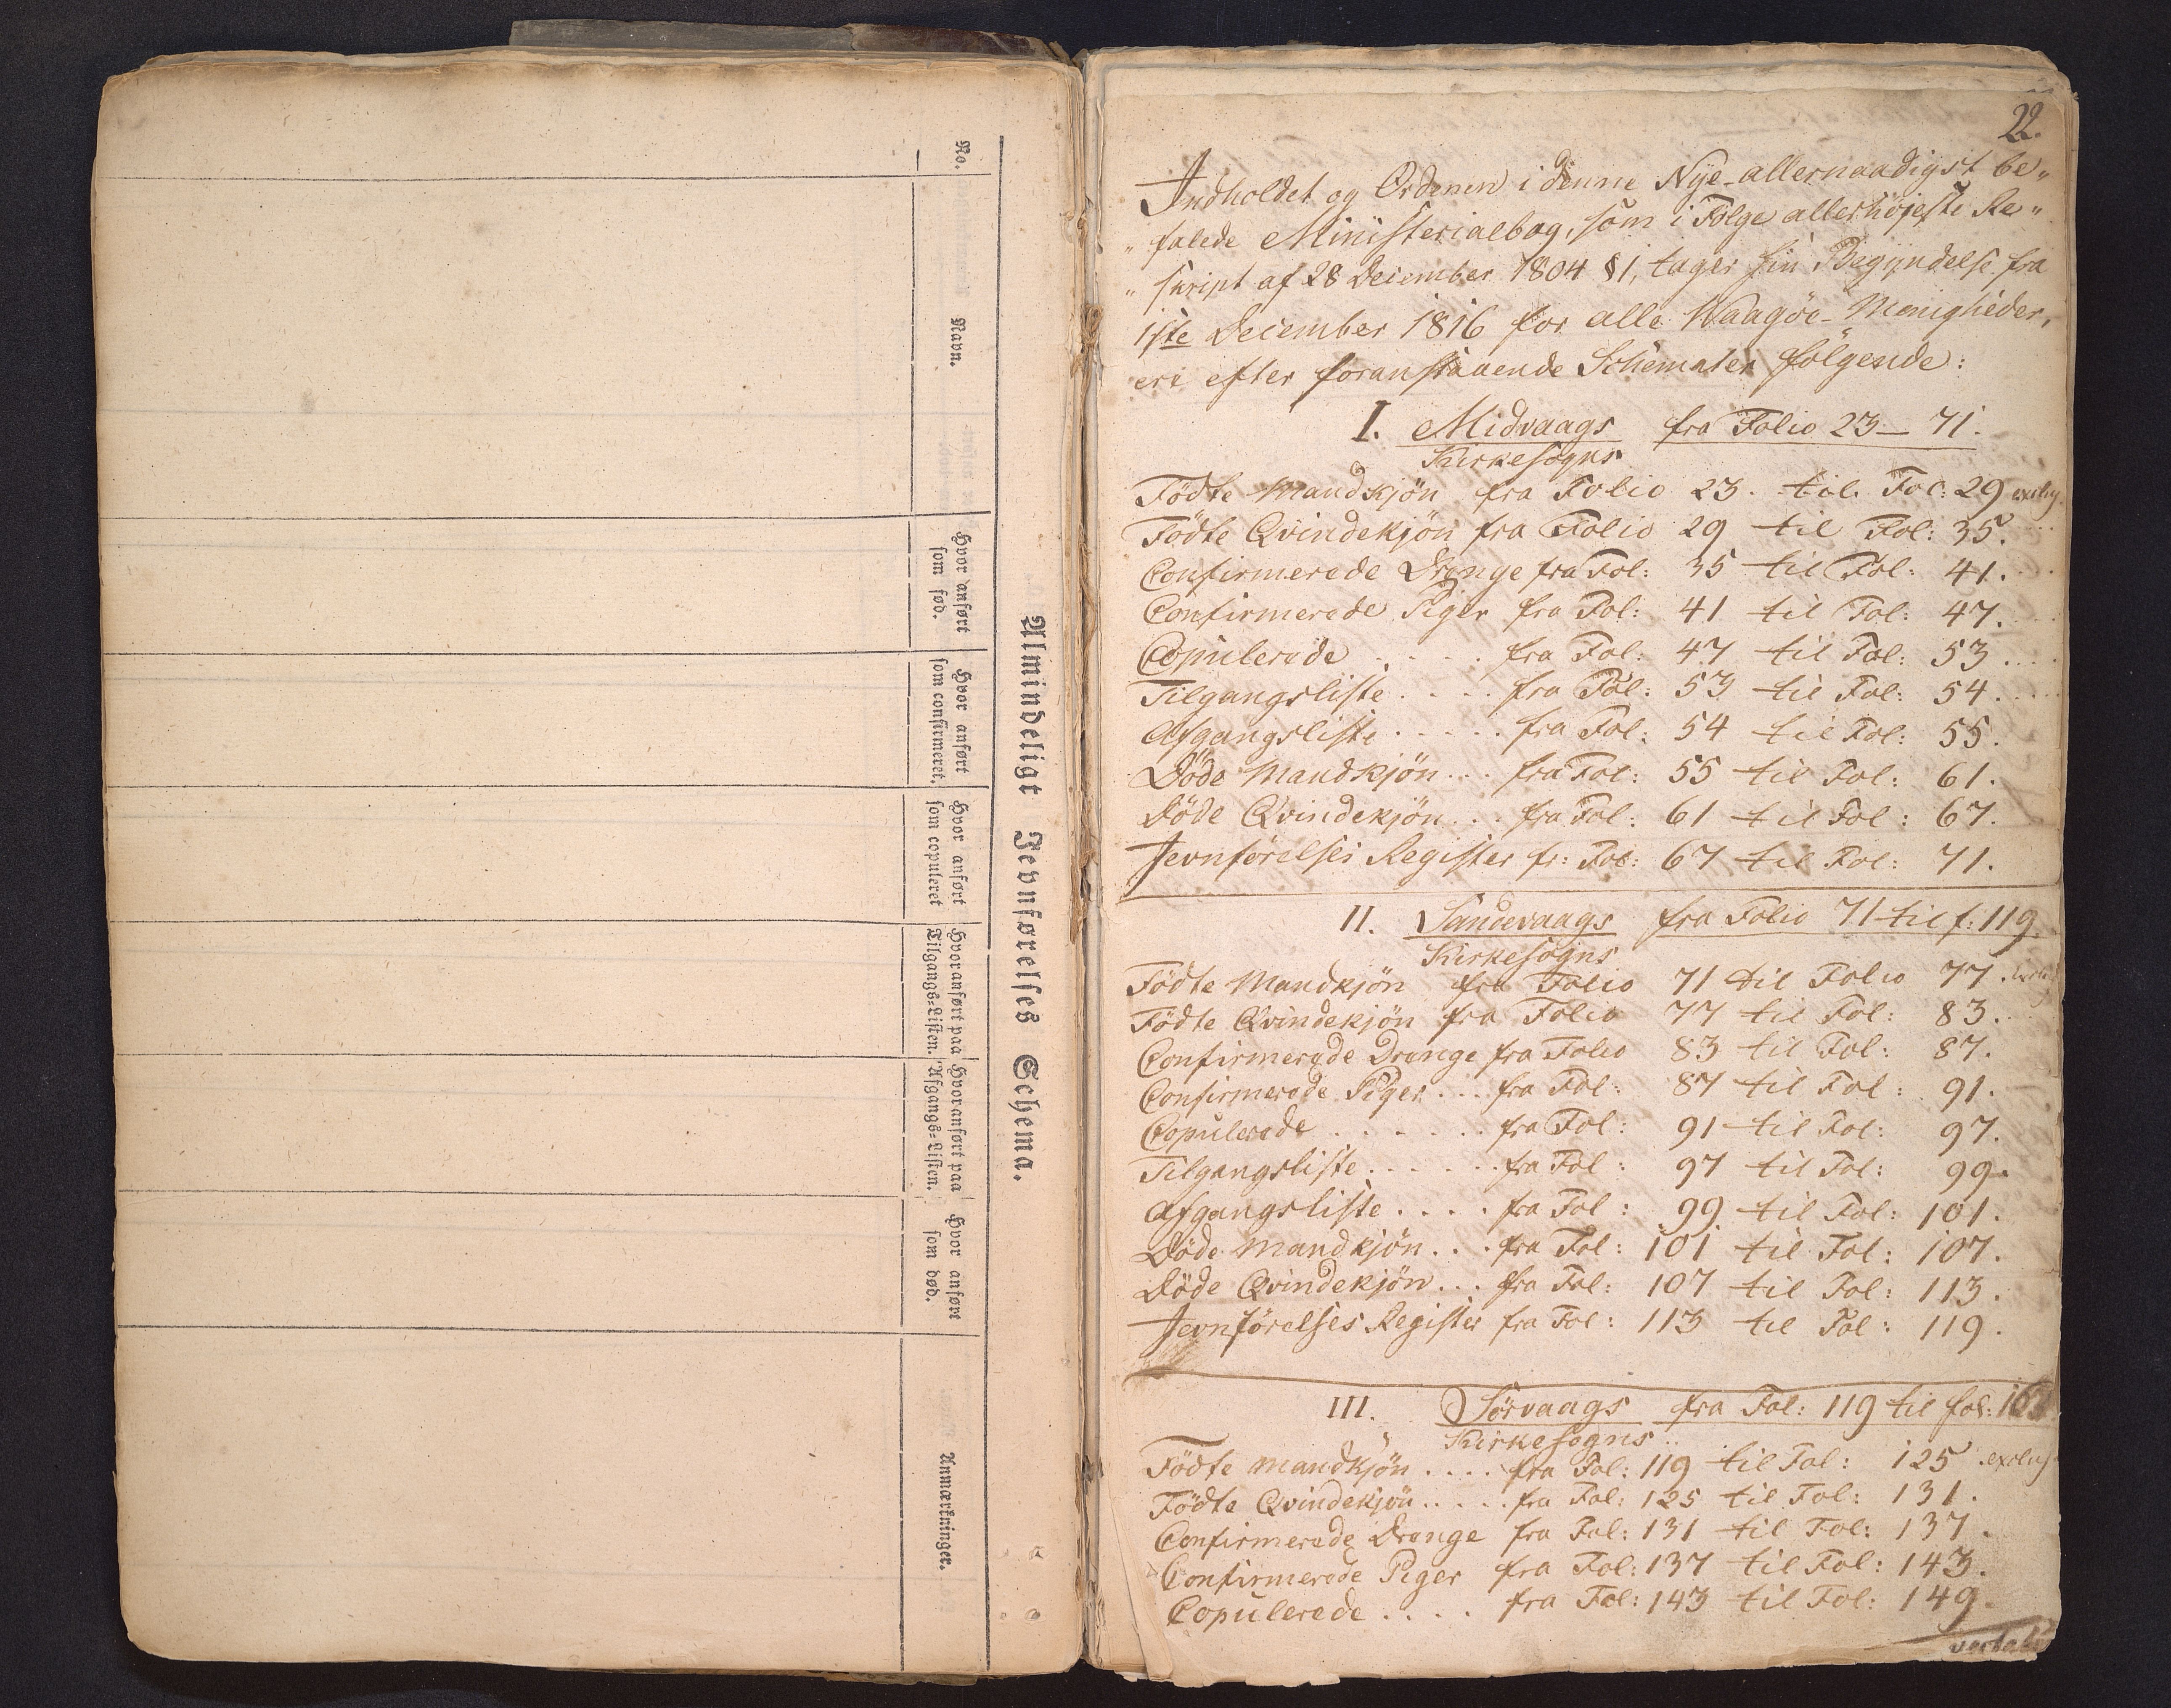 Almindeligt Jevnførelses Schema.
No.
Navn.
Hvor anført
som fød.
Hvor anført
som confirmeret.
Hvor anført
som copuleret
Hvor anført paa
Tilgangs-Listen.
Hvor anført paa
Afgangs-Listen.
Hvor anført
som død.
Anmærkninger.
22.
Indholdet og Ordenen i denne Nye allernaadigst be„
„falede Ministerialbog, som i Følge allerhöjeste Re„
„skript af 28 December 1804 §1, tager sin Begyndelse fra
1ste December 1816 for alle Waagöe-Menigheder,
ere efter foranstaaende Schemater følgende:
I. Midvaags fra Folio 23 – 71.
Kirkesogns
Födte Mandkjön fra Folio 23. til. Fol: 29 exclus.
Födte Qvindekjön fra Folio 29 til Fol: 35.
Confirmerede Drenge fra Fol: 35 til Fol: 41.
Confirmerede Piger fra Fol: 41 til Fol: 47.
Copulerede . . . . fra Fol: 47 til Fol: 53 . . .
Tilgangsliste . . . . fra Fol: 53 til Fol: 54.
Afgangsliste . . . . . fra Fol: 54 til Fol: 55.
Döde Mandkjön . . . fra Fol: 55 til Fol: 61.
Döde Qvindekjön . . . fra Fol: 61 til Fol: 67.
Jevnförelses Register fr: Fol: 67 til Fol: 71.
II. Sandevaags fra Folio 71 til f: 119.
Kirkesogns
Födte Mandkjön fra Folio 71 til Folio 77.
Födte Qvindekjön fra Folio 77 til Fol: 83.
Confirmerede Drenge fra Folio 83 til Fol: 87.
Confirmerede Piger . . . fra Fol: 87 til Fol: 91.
Copulerede . . . . . . fra Fol: 91 til Fol: 97.
Tilgangsliste . . . . . . fra Fol: 97 til Fol: 99.
Afgangsliste . . . . fra Fol: 99 til Fol: 101.
Döde Mandkjön . . . fra Fol: 101 til Fol: 107.
Döde Qvindekjön . . . fra Fol: 107 til Fol: 113.
Jevnförelses Register fra Fol: 113 til Fol: 119.
III. Sörvaags fra Fol: 119 til fol:
Kirkesogns
Födte Mandkjön . . . . fra Fol: 119 til Fol: 125 exclus.
Födte Qvindekjön . . . . . fra Fol: 125 til Fol: 131.
Confirmerede Drenge fra Fol: 131 til Fol: 137.
Confirmerede Piger fra Fol: 137 til Fol: 143.
Copulerede . . . . fra Fol: 143 til Fol: 149.